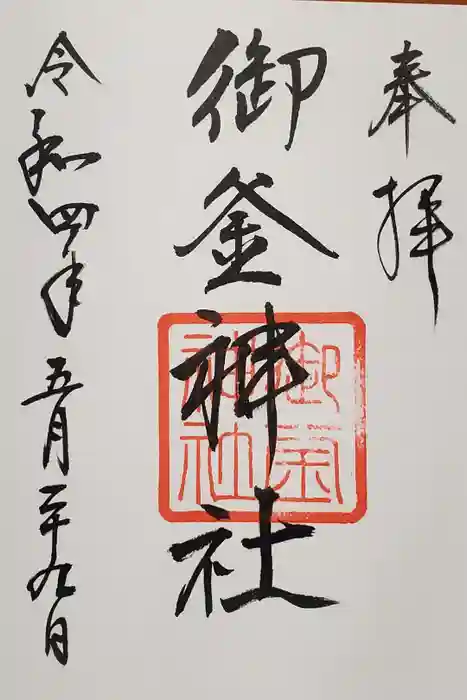 奉拝
御釜神社
御釜神社
令和四年五月二十九日